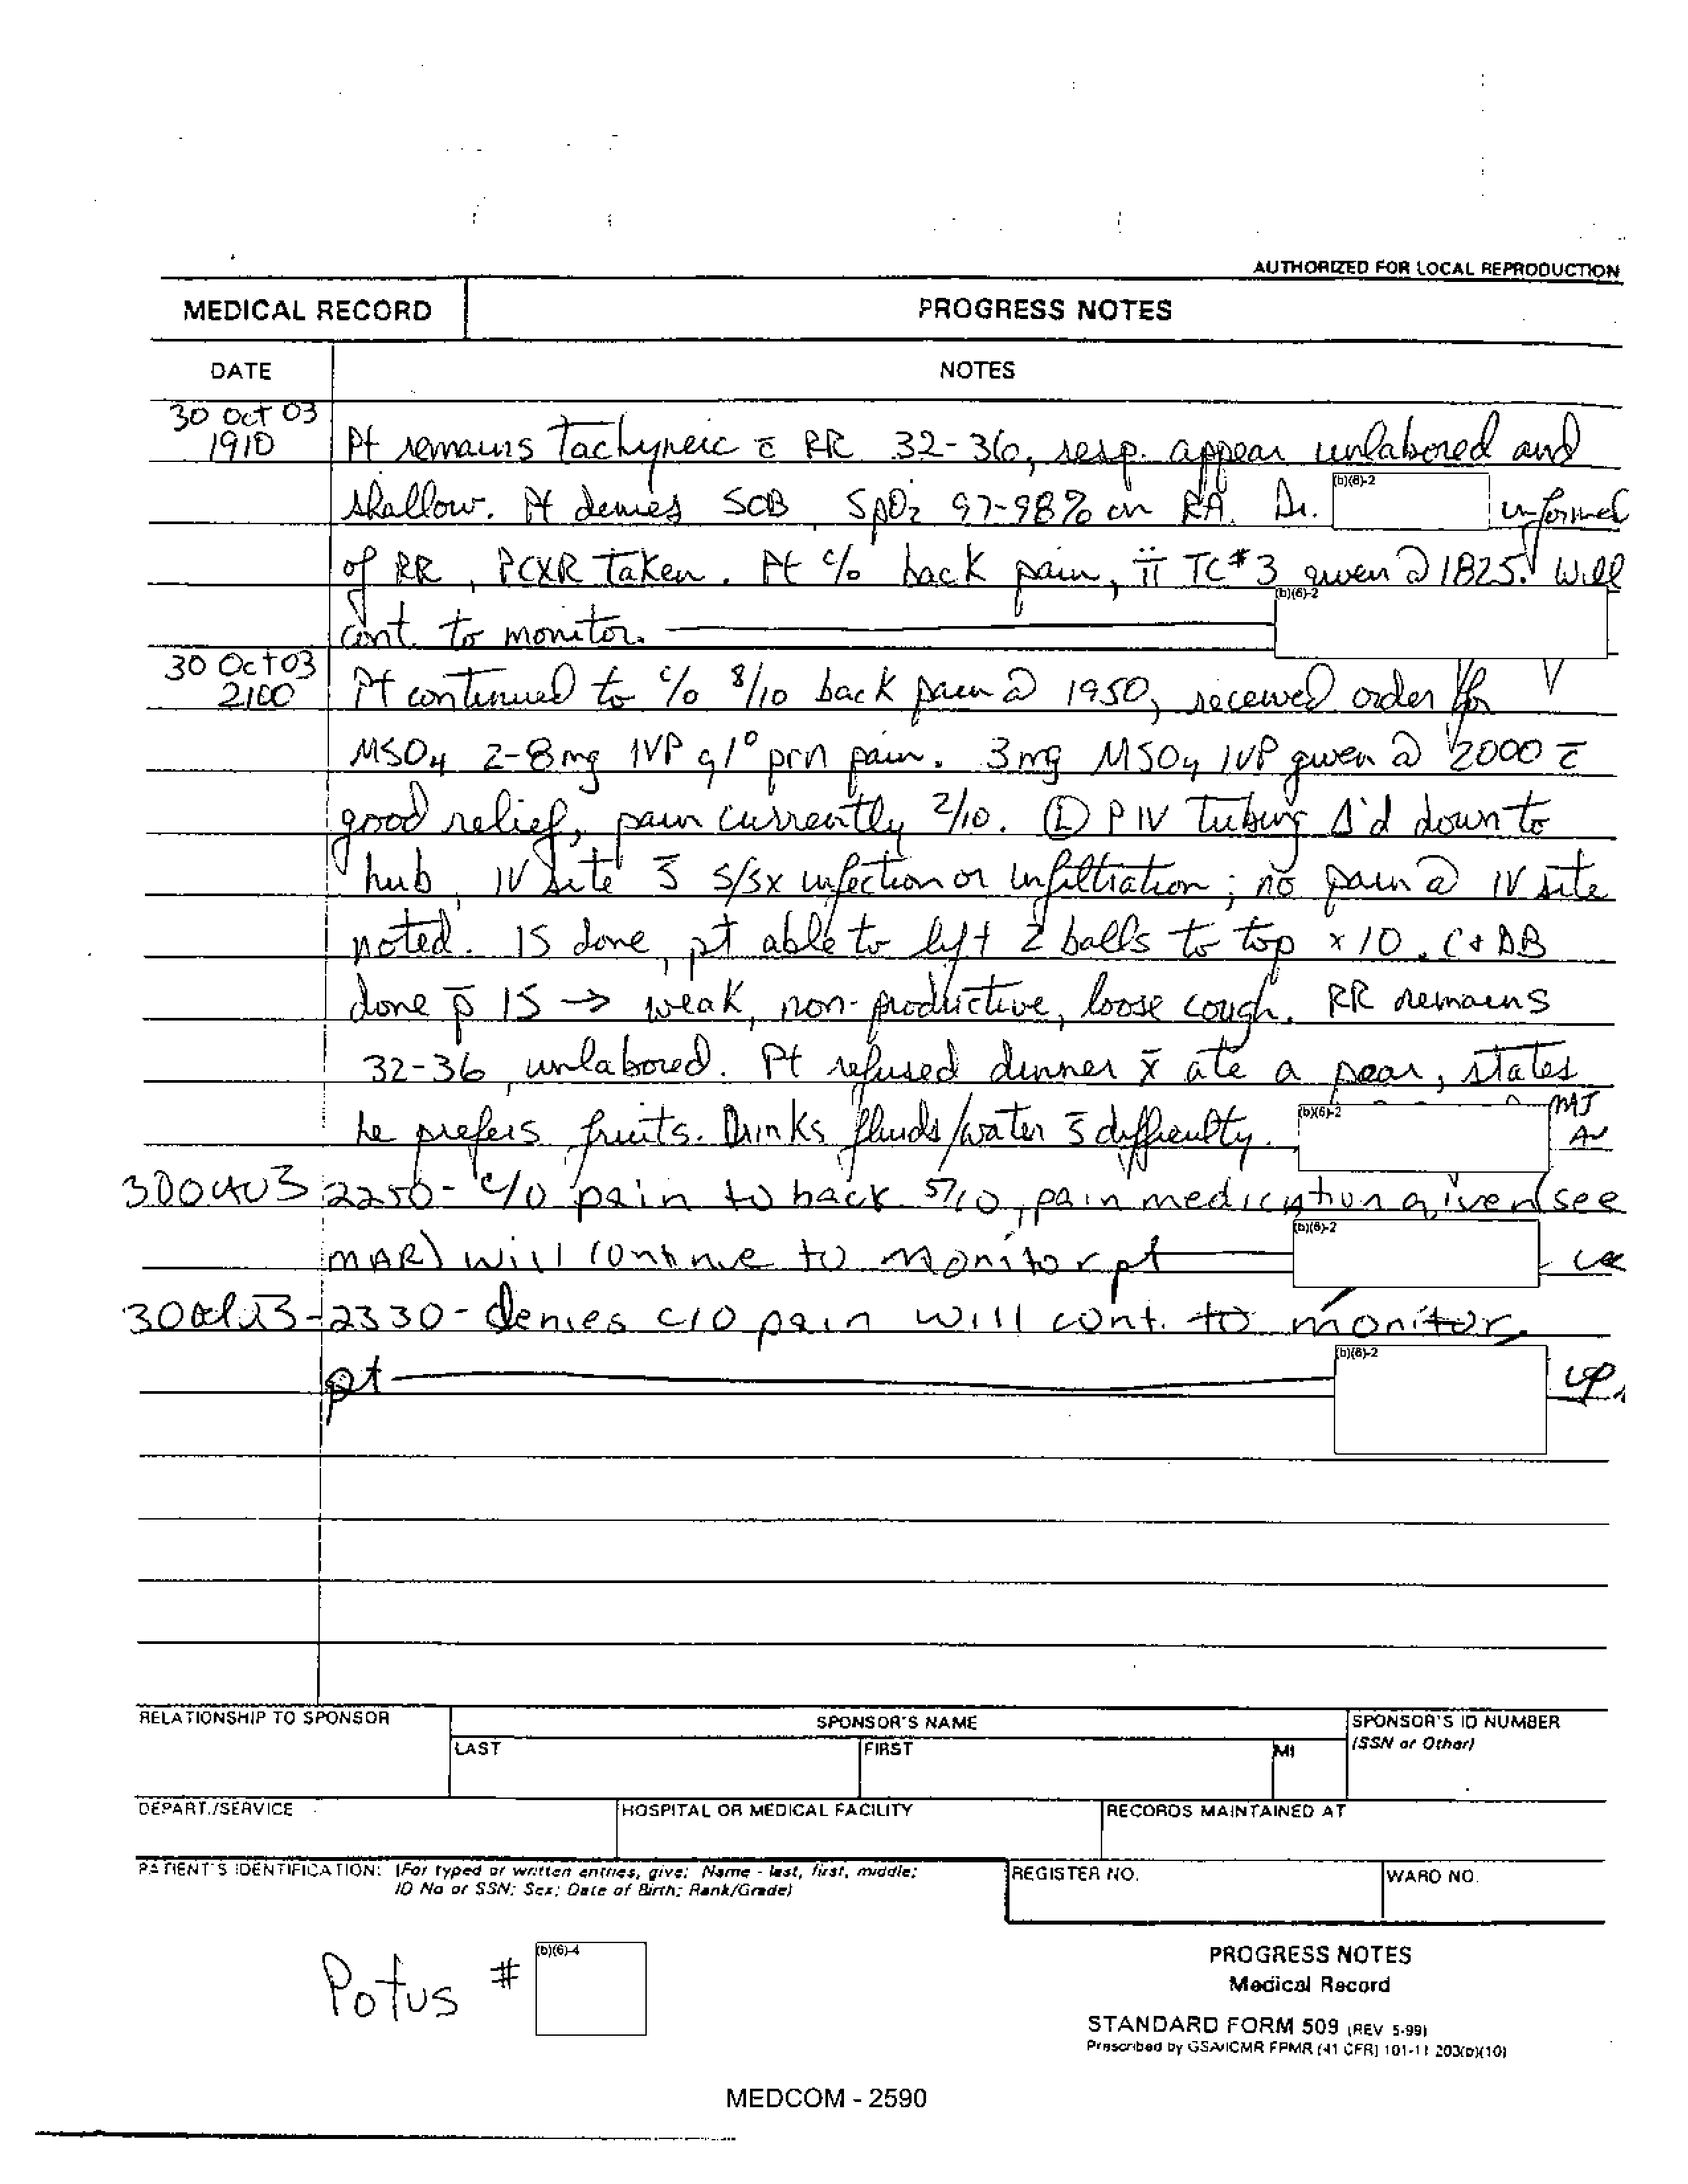 AUTHORIZED FOR LOCAL REPRODUCTION
MEDICAL RECORD PROGRESS NOTES
DATE NOTES
30 Oct 03
1910 Pt remains tachypneic c̄ RR 32-36, resp. appear unlabored and
shallow. Pt denies SOB, SpO2 97-98% on RA. Dr. (b)(6)-2 informed
of RR, PCXR taken. Pt c/o back pain, ii TC#3 given @ 1825. Will
cont. to monitor. (b)(6)-2
30 Oct 03
2100 Pt continued to c/o 8/10 back pain @ 1950, received order for
MSO4 2-8mg IVP q 1° prn pain. 3mg MSO4 IVP given @ 2000 c̄
good relief, pain currently 2/10. Ⓛ PIV tubing Δ'd down to
hub, IV site s̄ s/sx infection or infiltration; no pain @ IV site
noted. IS done, pt able to lift 2 balls to top x 10. C+DB
done p̄ IS → weak, non-productive, loose cough. RR remains
32-36, unlabored. Pt refused dinner x̄ ate a pear, states
he prefers fruits. Drinks fluids/water s̄ difficulty. (b)(6)-2 MAJ
AN
30Oct03 2250- c/o pain to back 5/10, pain medication given (see
MAR) will continue to monitor pt (b)(6)-2
30Oct03-2330- denies c/o pain will cont. to monitor
pt (b)(6)-2
RELATIONSHIP TO SPONSOR SPONSOR'S NAME SPONSOR'S ID NUMBER
LAST FIRST MI (SSN or Other)
DEPART./SERVICE HOSPITAL OR MEDICAL FACILITY RECORDS MAINTAINED AT
PATIENT'S IDENTIFICATION: (For typed or written entries, give: Name - last, first, middle; REGISTER NO. WARD NO.
ID No or SSN; Sex; Date of Birth; Rank/Grade)
Potus # (b)(6)-4
PROGRESS NOTES
Medical Record
STANDARD FORM 509 (REV 5-99)
Prescribed by GSA/ICMR FPMR (41 CFR) 101-11 203(b)(10)
MEDCOM - 2590